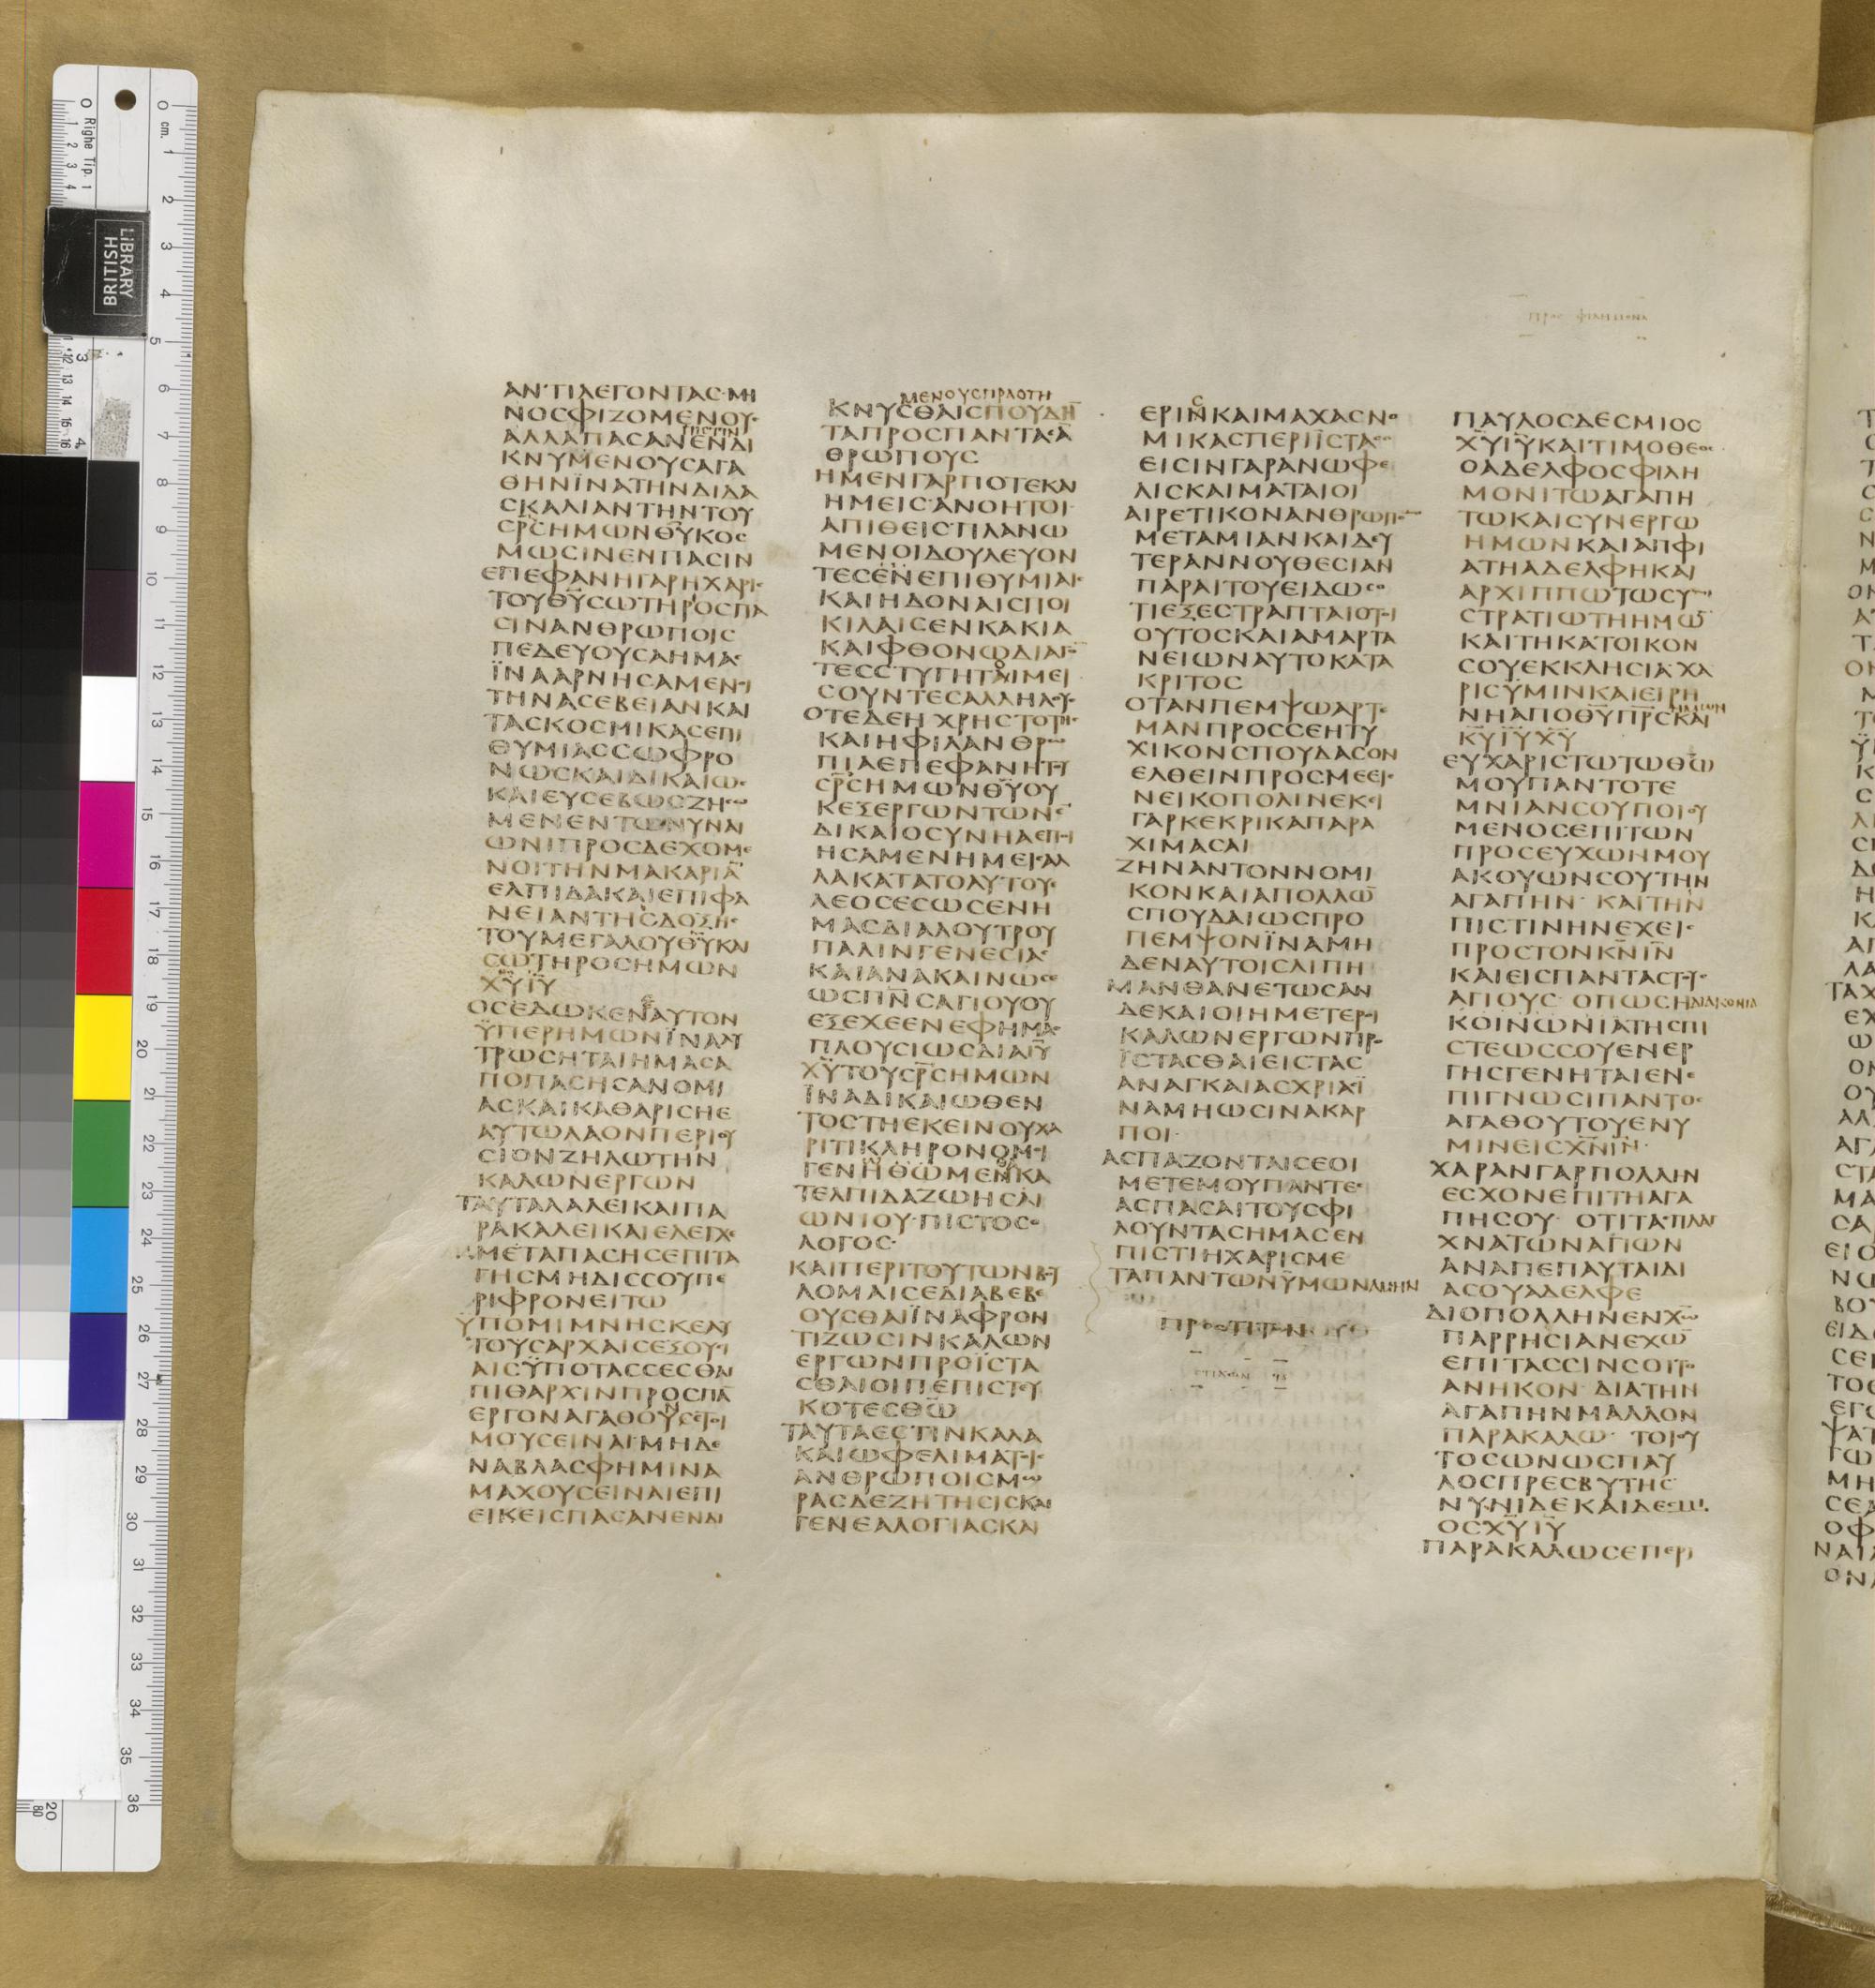 ΠΡΟΣ ΦΙΛΗΜΟΝΑ
ΑΝΤΙΛΕΓΟΝΤΑΣ ΜΗ
ΝΟΣΦΙΖΟΜΕΝΟΥΣ
ΑΛΛΑΠΑΣΑΝΕΝΔΙ
ΚΝΥΜΕΝΟΥΣΑΓΑ
ΘΗΝΪΝΑΤΗΝΔΙΔΑ
ΣΚΑΛΙΑΝΤΗΝΤΟΥ
ΣΡ̅ΣΗΜΩΝΘΥ̅ΚΟΣ
ΜΩΣΙΝΕΝΠΑΣΙΝ
ΕΠΕΦΑΝΗΓΑΡΗΧΑΡΙΣ
ΤΟΥΘΥ̅ΣΩΤΗΡΟΣΠΑ
ΣΙΝΑΝΘΡΩΠΟΙΣ
ΠΕΔΕΥΟΥΣΑΗΜΑΣ
ΪΝΑΑΡΝΗΣΑΜΕΝΟΙ
ΤΗΝΑΣΕΒΕΙΑΝΚΑΙ
ΤΑΣΚΟΣΜΙΚΑΣΕΠΙ
ΘΥΜΙΑΣΣΩΦΡΟ
ΝΩΣΚΑΙΔΙΚΑΙΩΣ
ΚΑΙΕΥΣΕΒΩΣΖΗΣΩ
ΜΕΝΕΝΤΩΝΥΝΑΙ
ΩΝΙΠΡΟΣΔΕΧΟΜΕ
ΝΟΙΤΗΝΜΑΚΑΡΙΑ̅
ΕΛΠΙΔΑΚΑΙΕΠΙΦΑ
ΝΕΙΑΝΤΗΣΔΟΞΗΣ
ΤΟΥΜΕΓΑΛΟΥΘΥ̅ΚΑΙ
ΣΩΤΗΡΟΣΗΜΩΝ
ΧΥ̅ΙΥ̅
ΟΣΕΔΩΚΕΝΑΥΤΟΝ
ΫΠΕΡΗΜΩΝΪΝΑΛΥ
ΤΡΩΣΗΤΑΙΗΜΑΣΑ
ΠΟΠΑΣΗΣΑΝΟΜΙ
ΑΣΚΑΙΚΑΘΑΡΙΣΗΕ
ΑΥΤΩΛΑΟΝΠΕΡΙΟΥ
ΣΙΟΝΖΗΛΩΤΗΝ
ΚΑΛΩΝΕΡΓΩΝ
ΤΑΥΤΑΛΑΛΕΙΚΑΙΠΑ
ΡΑΚΑΛΕΙΚΑΙΕΛΕΓΧΕ
ΜΕΤΑΠΑΣΗΣΕΠΙΤΑ
ΓΗΣΜΗΔΙΣΣΟΥΠΕ
ΡΙΦΡΟΝΕΙΤΩ
ΫΠΟΜΙΜΝΗΣΚΕΑΥ
ΤΟΥΣΑΡΧΑΙΣΕΞΟΥΣΙ
ΑΙΣΫΠΟΤΑΣΣΕΣΘΑΙ
ΠΙΘΑΡΧΙΝΠΡΟΣΠΑ̅
ΕΡΓΟΝΑΓΑΘΟΥΣΕΤΟΙ
ΜΟΥΣΕΙΝΑΙ ΜΗΔΕ
ΝΑΒΛΑΣΦΗΜΙΝΑ
ΜΑΧΟΥΣΕΙΝΑΙΕΠΙ
ΕΙΚΕΙΣΠΑΣΑΝΕΝΔΙ
ΜΕΝΟΥΣΠΡΑΟΤΗ
ΚΝΥΣΘΑΙΣΠΟΥΔΗ̅
ΤΑΠΡΟΣΠΑΝΤΑΣΑ̅
ΘΡΩΠΟΥΣ
ΗΜΕΝΓΑΡΠΟΤΕΚΑΙ
ΗΜΕΙΣ ΑΝΟΗΤΟΙ
ΑΠΙΘΕΙΣΠΛΑΝΩ
ΜΕΝΟΙΔΟΥΛΕΥΟΝ
ΤΕΣΕΝΕΠΙΘΥΜΙΑΙΣ
ΚΑΙΗΔΟΝΑΙΣΠΟΙ
ΚΙΛΑΙΣΕΝΚΑΚΙΑ
ΚΑΙΦΘΟΝΩΔΙΑΓΟ̅
ΤΕΣΣΤΥΓΗΤΑΙΜΕΙ
ΣΟΥΝΤΕΣΑΛΛΗΛΟΥΣ
ΟΤΕΔΕΗΧΡΗΣΤΟΤΗΣ
ΚΑΙΗΦΙΛΑΝΘΡΩ
ΠΙΑΕΠΕΦΑΝΗΤΟΥ
ΣΡ̅ΣΗΜΩΝΘΥ̅ΟΥ
ΚΕΞΕΡΓΩΝΤΩΝΕ̅
ΔΙΚΑΙΟΣΥΝΗΑΕΠΟΙ
ΗΣΑΜΕΝΗΜΕΙΣΑΛ
ΛΑΚΑΤΑΤΟΑΥΤΟΥ
ΛΕΟΣΕΣΩΣΕΝΗ
ΜΑΣΔΙΑΛΟΥΤΡΟΥ
ΠΑΛΙΝΓΕΝΕΣΙΑΣ
ΚΑΙΑΝΑΚΑΙΝΩΣΕ
ΩΣΠΝ̅ΣΑΓΙΟΥΟΥ
ΕΞΕΧΕΕΝΕΦΗΜΑΣ
ΠΛΟΥΣΙΩΣΔΙΑΙΥ̅
ΧΥ̅ΤΟΥΣΡ̅ΣΗΜΩΝ
ΪΝΑΔΙΚΑΙΩΘΕΝ
ΤΟΣΤΗΕΚΕΙΝΟΥΧΑ
ΡΙΤΙΚΛΗΡΟΝΟΜΟΙ
ΓΕΝΗΘΩΜΕΝΚΑ
ΤΕΛΠΙΔΑΖΩΗΣΑΙ
ΩΝΙΟΥ ΠΙΣΤΟΣΟ
ΛΟΓΟΣ
ΚΑΙΠΕΡΙΤΟΥΤΩΝΒΟΥ
ΛΟΜΑΙΣΕΔΙΑΒΕΒΕ
ΟΥΣΘΑΙΪΝΑΦΡΟΝ
ΤΙΖΩΣΙΝΚΑΛΩΝ
ΕΡΓΩΝΠΡΟΪΣΤΑ
ΣΘΑΙΟΙΠΕΠΙΣΤΕΥ
ΚΟΤΕΣΘΩ̅
ΤΑΥΤΑΕΣΤΙΝΚΑΛΑ
ΚΑΙΩΦΕΛΙΜΑΤΟΙΣ
ΑΝΘΡΩΠΟΙΣΜΩ
ΡΑΣΔΕΖΗΤΗΣΙΣΚΑΙ
ΓΕΝΕΑΛΟΓΙΑΣΚΑΙ
ΕΡΙΝΚΑΙΜΑΧΑΣΝΟ
ΜΙΚΑΣΠΕΡΙΪΣΤΑΣΟ
ΕΙΣΙΝΓΑΡΑΝΩΦΕ
ΛΙΣΚΑΙΜΑΤΑΙΟΙ
ΑΙΡΕΤΙΚΟΝΑΝΘΡΩΠΟΝ
ΜΕΤΑΜΙΑΝΚΑΙΔΕΥ
ΤΕΡΑΝΝΟΥΘΕΣΙΑΝ
ΠΑΡΑΙΤΟΥΕΙΔΩΣΟ
ΤΙΕΞΕΣΤΡΑΠΤΑΙΟΤΟΙ
ΟΥΤΟΣΚΑΙΑΜΑΡΤΑ
ΝΕΙΩΝΑΥΤΟΚΑΤΑ
ΚΡΙΤΟΣ
ΟΤΑΝΠΕΜΨΩΑΡΤΕ
ΜΑΝΠΡΟΣΣΕΗΤΥ
ΧΙΚΟΝΣΠΟΥΔΑΣΟΝ
ΕΛΘΕΙΝΠΡΟΣΜΕΕΙΣ
ΝΕΙΚΟΠΟΛΙΝΕΚΕΙ
ΓΑΡΚΕΚΡΙΚΑΠΑΡΑ
ΧΙΜΑΣΑΙ
ΖΗΝΑΝΤΟΝΝΟΜΙ
ΚΟΝΚΑΙΑΠΟΛΛΩ̅
ΣΠΟΥΔΑΙΩΣΠΡΟ
ΠΕΜΨΟΝΪΝΑΜΗ
ΔΕΝΑΥΤΟΙΣΛΙΠΗ
ΜΑΝΘΑΝΕΤΩΣΑΝ
ΔΕΚΑΙΟΙΗΜΕΤΕΡΟΙ
ΚΑΛΩΝΕΡΓΩΝΠΡΟ
ΪΣΤΑΣΘΑΙΕΙΣΤΑΣ
ΑΝΑΓΚΑΙΑΣΧΡΙΑΣΪ
ΝΑΜΗΩΣΙΝΑΚΑΡ
ΠΟΙ
ΑΣΠΑΖΟΝΤΑΙΣΕΟΙ
ΜΕΤΕΜΟΥΠΑΝΤΕΣ
ΑΣΠΑΣΑΙΤΟΥΣΦΙ
ΛΟΥΝΤΑΣΗΜΑΣΕΝ
ΠΙΣΤΙΗΧΑΡΙΣΜΕ
ΤΑΠΑΝΤΩΝΫΜΩΝΑΜΗΝ
ΠΡΟΣΤΙΤΟΝ
ΣΤΙΧΩΝ
ΠΑΥΛΟΣΔΕΣΜΙΟΣ
ΧΥ̅ΙΥ̅ΚΑΙΤΙΜΟΘΕΟΣ
ΟΑΔΕΛΦΟΣΦΙΛΗ
ΜΟΝΙΤΩΑΓΑΠΗ
ΤΩΚΑΙΣΥΝΕΡΓΩ
ΗΜΩΝΚΑΙΑΠΦΙ
ΑΤΗΑΔΕΛΦΗΚΑΙ
ΑΡΧΙΠΠΩΤΩΣΥ
ΣΤΡΑΤΙΩΤΗΗΜΩ̅
ΚΑΙΤΗΚΑΤΟΙΚΟΝ
ΣΟΥΕΚΚΛΗΣΙΑ ΧΑ
ΡΙΣΫΜΙΝΚΑΙΕΙΡΗ
ΝΗΑΠΟΘΥ̅ΠΡ̅ΣΚΑΙ
ΚΥ̅ΙΥ̅ΧΥ̅
ΕΥΧΑΡΙΣΤΩΤΩΘΩ̅
ΜΟΥΠΑΝΤΟΤΕ
ΜΝΙΑΝΣΟΥΠΟΙΟΥ
ΜΕΝΟΣΕΠΙΤΩΝ
ΠΡΟΣΕΥΧΩΝΜΟΥ
ΑΚΟΥΩΝΣΟΥΤΗΝ
ΑΓΑΠΗΝ ΚΑΙΤΗΝ
ΠΙΣΤΙΝΗΝΕΧΕΙΣ
ΠΡΟΣΤΟΝΚΝ̅ΙΝ̅
ΚΑΙΕΙΣΠΑΝΤΑΣΤΟΥΣ
ΑΓΙΟΥΣ ΟΠΩΣΗΔΙΑΚΟΝΙΑ
ΚΟΙΝΩΝΙΑΤΗΣΠΙ
ΣΤΕΩΣΣΟΥΕΝΕΡ
ΓΗΣΓΕΝΗΤΑΙΕΝΕ
ΠΙΓΝΩΣΙΠΑΝΤΟΣ
ΑΓΑΘΟΥΤΟΥΕΝΥ
ΜΙΝΕΙΣΧΝ̅ΙΝ̅
ΧΑΡΑΝΓΑΡΠΟΛΛΗΝ
ΕΣΧΟΝΕΠΙΤΗΑΓΑ
ΠΗΣΟΥ ΟΤΙΤΑΣΠΛΑΓ
ΧΝΑΤΩΝΑΓΙΩΝ
ΑΝΑΠΕΠΑΥΤΑΙΔΙ
ΑΣΟΥΑΔΕΛΦΕ
ΔΙΟΠΟΛΛΗΝΕΝΧΩ̅
ΠΑΡΡΗΣΙΑΝΕΧΩ̅
ΕΠΙΤΑΣΣΙΝΣΟΙΤΟ
ΑΝΗΚΟΝ ΔΙΑΤΗΝ
ΑΓΑΠΗΝΜΑΛΛΟΝ
ΠΑΡΑΚΑΛΩ ΤΟΙΟΥ
ΤΟΣΩΝΩΣΠΑΥ
ΛΟΣΠΡΕΣΒΥΤΗΣ
ΝΥΝΙΔΕΚΑΙΔΕΣΜΙ
ΟΣΧΥ̅ΙΥ̅
ΠΑΡΑΚΑΛΩΣΕΠΕΡΙ
LIBRARY
BRITISH